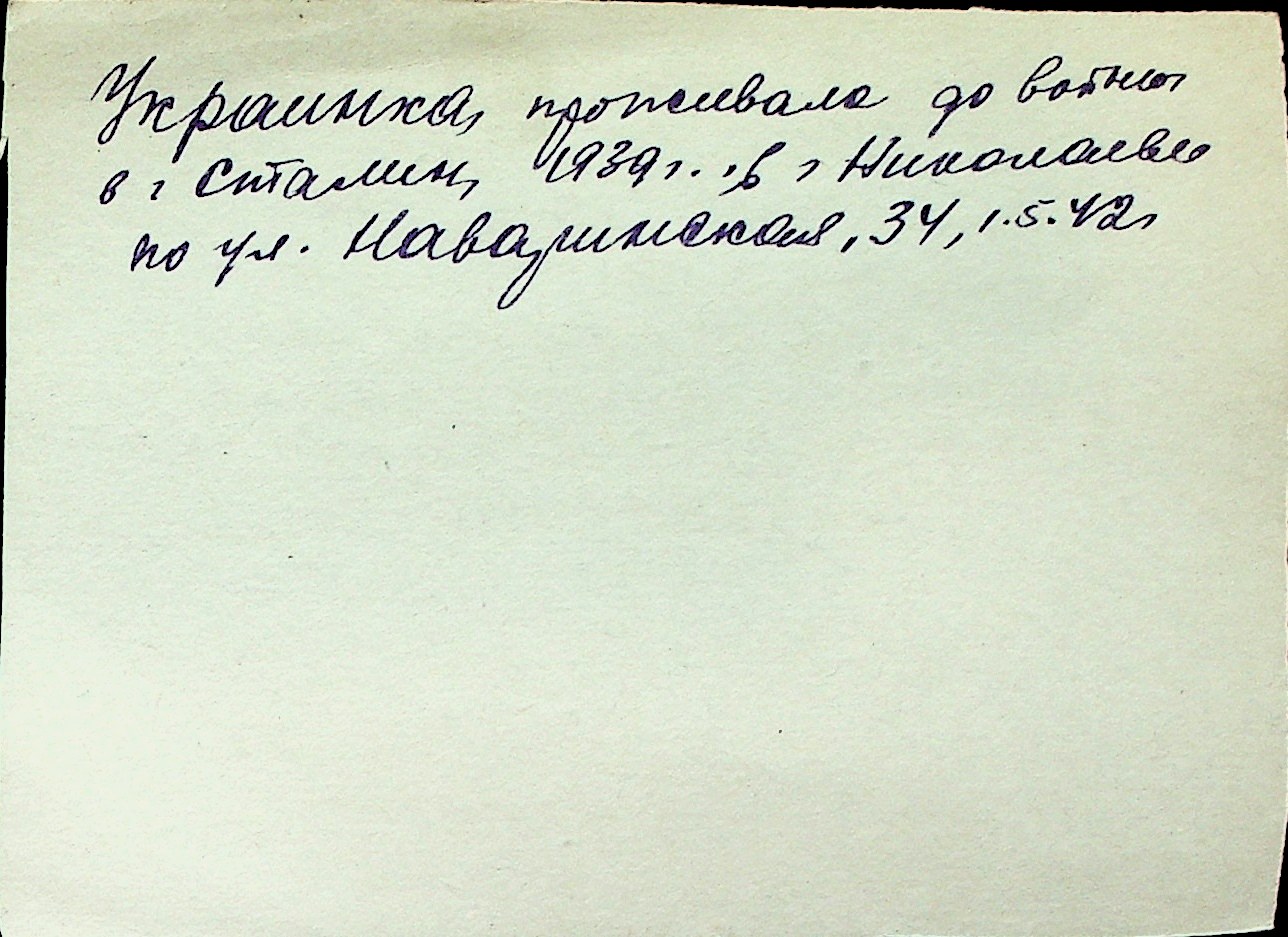 Украинка, проживала до войны
в г Сталин, 1939 г., в г Николаеве
по ул. Навазинская, 34, 1.5.42г